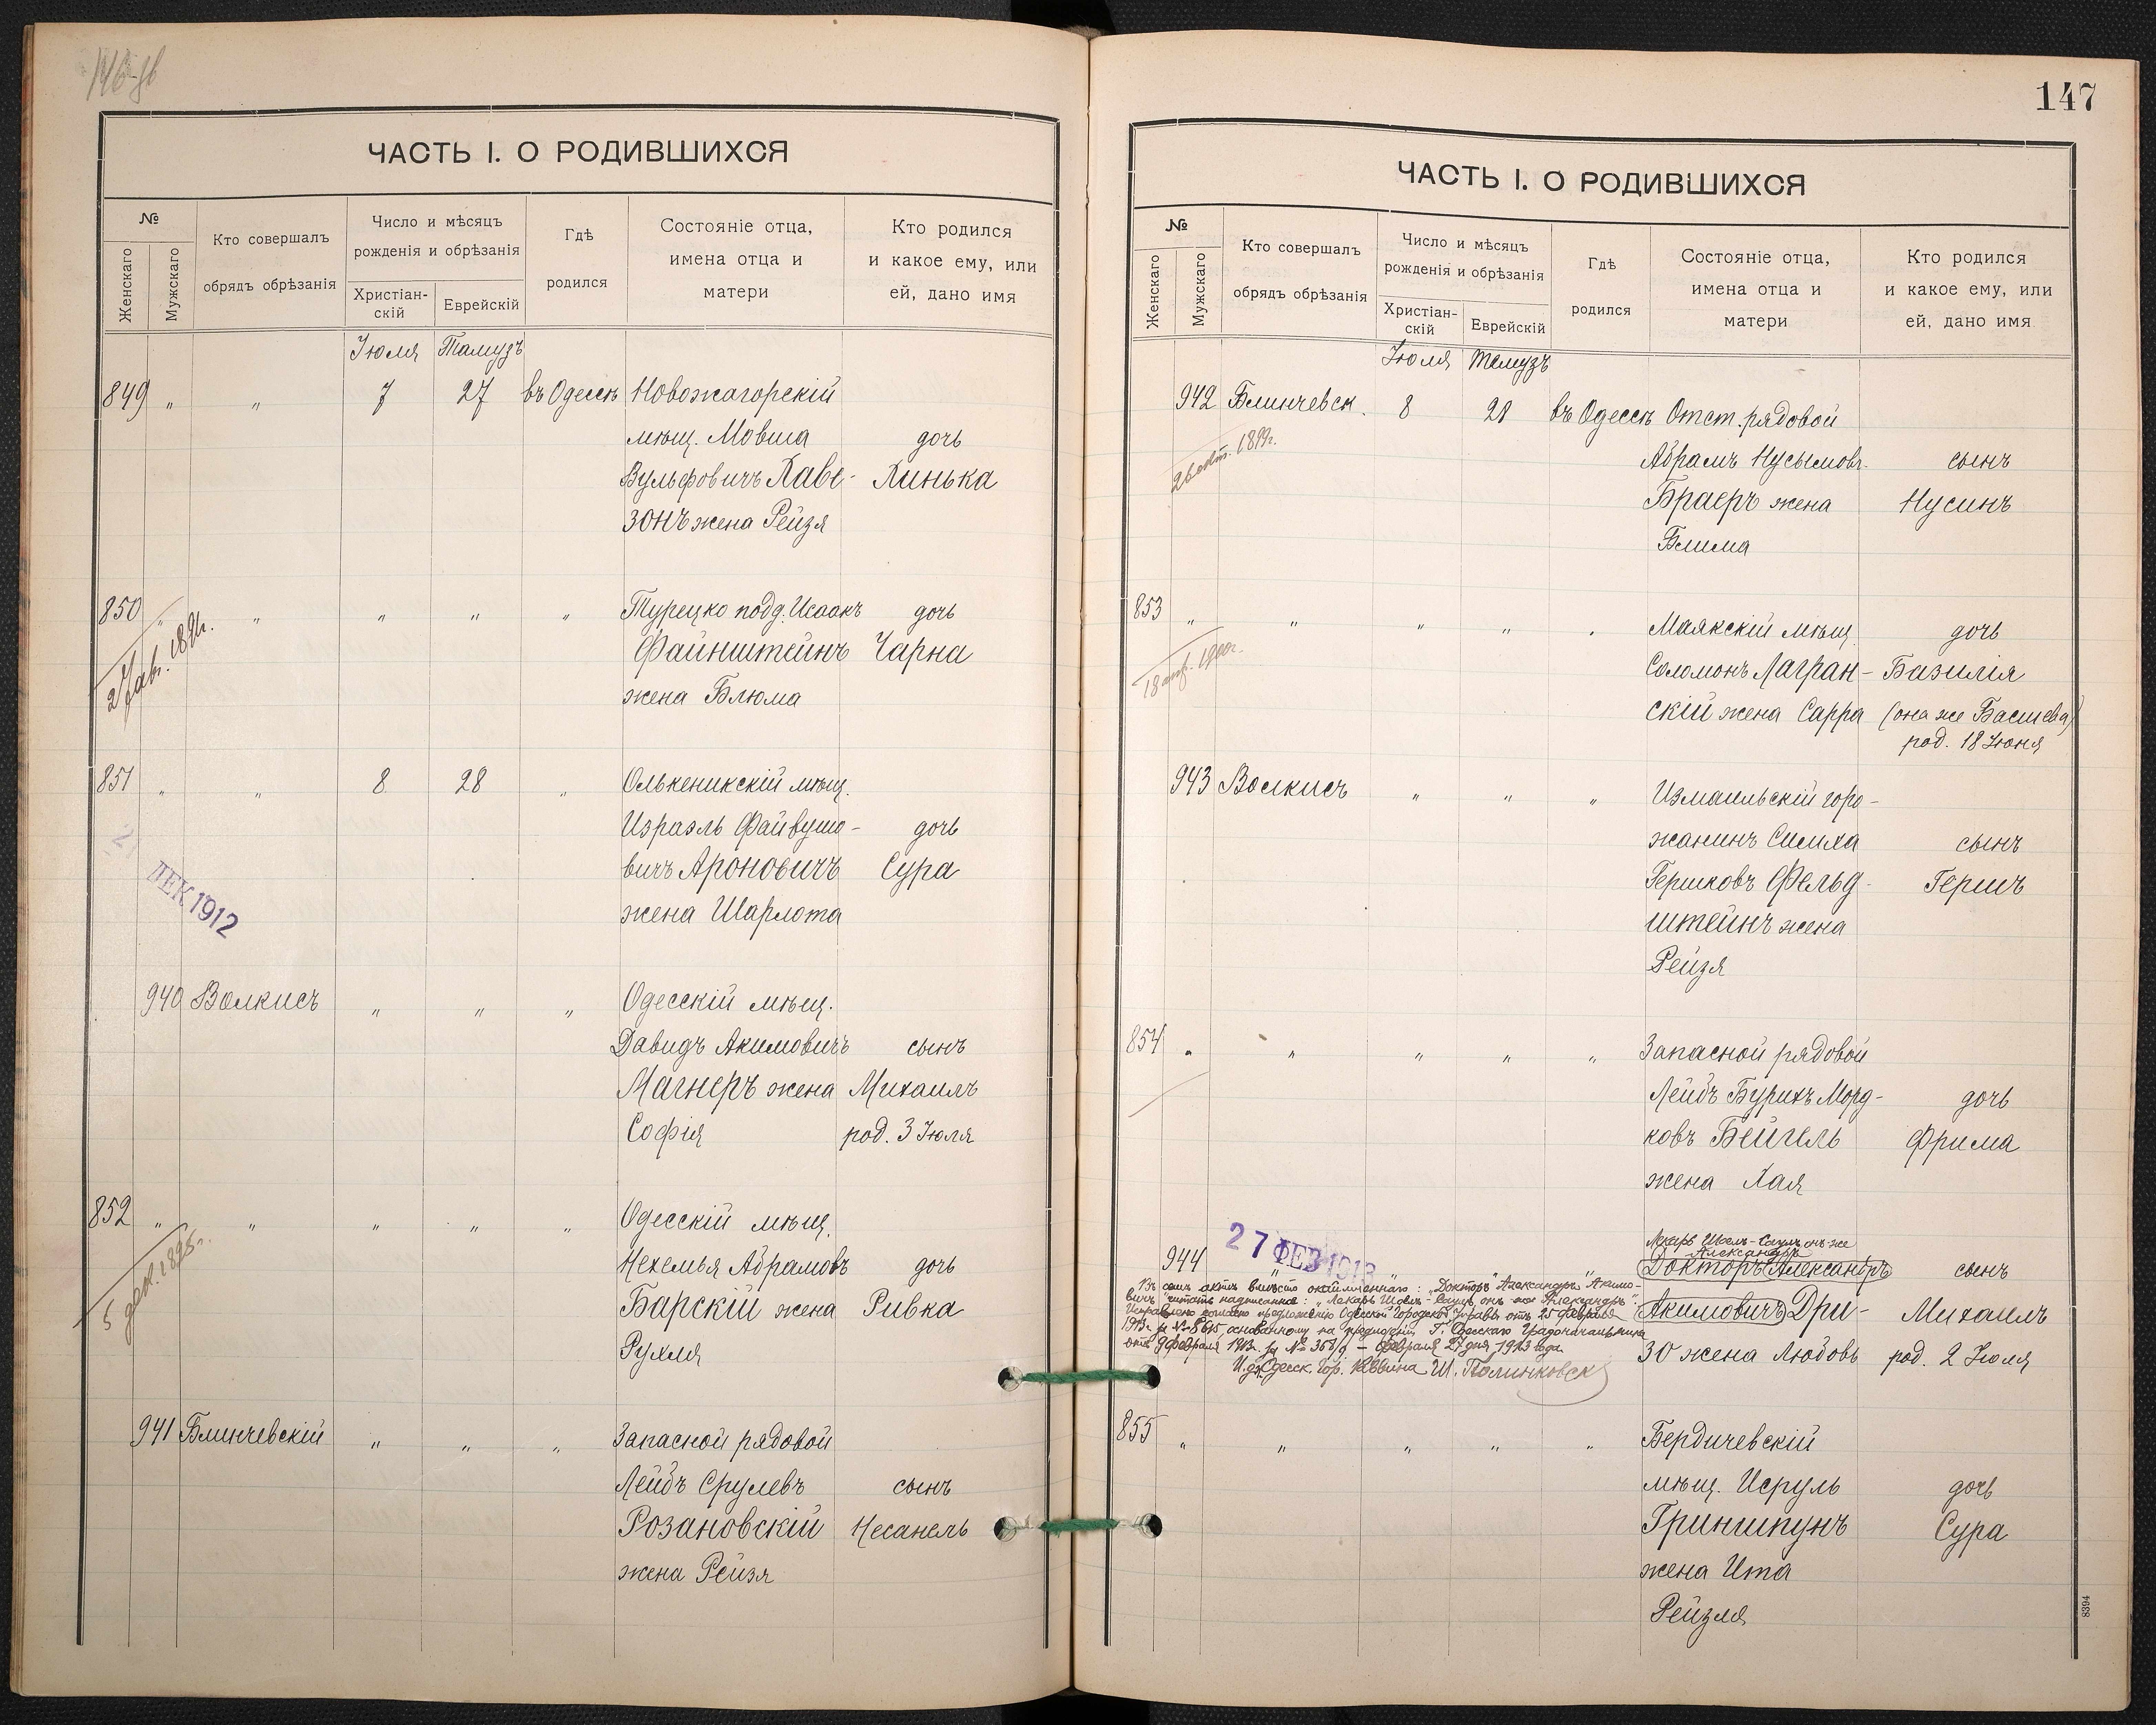 146 об
ЧАСТЬ I. О РОДИВШИХСЯ
№
Женскаго
Мужскаго
Кто совершалъ
обрядъ обрѣзанія
Число и мѣсяцъ
рожденія и обрѣзанія
Христіан-
скій
Еврейскій
Гдѣ
родился
Состояніе отца,
имена отца и
матери
Кто родился
и какое ему, или
ей, дано имя
Іюля Тамузъ
849 " " 7 27 въ Одессѣ Новожагорскій
мѣщ. Мовша дочь
Вульфовичъ Хаве- Хинька
зонъ жена Рейзя
850 " " " " " Турецко подд. Исаакъ дочь
Файнштейнъ Чарна
жена Блюма
851 " " 8 28 " Олькеникскій мѣщ.
Израэль Файвушо- дочь
вичъ Ароновичъ Сура
жена Шарлота
2 ДЕК 1912
940 Волкисъ " " " Одесскій мѣщ.
Давидъ Акимовичъ сынъ
Магнеръ жена Михаилъ
Софія род. 3 Іюля
852 " " " " " Одесскій мѣщ.
Нехемья Абрамовъ дочь
Барскій жена Ривка
Рухля
5 дек. 1895 г.
941 Блинчевскій " " " Запасной рядовой
Лейбъ Срулевъ сынъ
Розановскій Несанель
жена Рейзя
147
ЧАСТЬ I. О РОДИВШИХСЯ
№
Женскаго
Мужскаго
Кто совершалъ
обрядъ обрѣзанія
Число и мѣсяцъ
рожденія и обрѣзанія
Христіан-
скій
Еврейскій
Гдѣ
родился
Состояніе отца,
имена отца и
матери
Кто родился
и какое ему, или
ей, дано имя
Іюля Тамузъ
942 Блинчевск. 8 28 въ Одессѣ Отст. рядовой
Абрамъ Нусымовъ сынъ
Браеръ жена Нусинъ
Блима
853 " " " " " Маякскій мѣщ.
Соломонъ Лагран- дочь
скій жена Сарра Базилія
(она же Басшева)
род. 18 Іюня
943 Волкисъ " " " Измаильскій горо-
жанинъ Симха сынъ
Гершковъ Фельд- Гершъ
штейнъ жена
Рейзя
854 " " " " " Запасной рядовой
Лейбъ Бурихъ Морд- дочь
ковъ Бейгель Фрима
жена Хая
27 ФЕВ 1913
944 " Лекарь Шоель-Саулъ онъ же
Александръ
Докторъ Александръ сынъ
Акимовичъ Дри- Михаилъ
зо жена Любовь род. 2 Іюля
Въ семъ актѣ вмѣсто окаймленнаго: "Докторъ" Александръ "Акимо-
вичъ" читать надписанное: "Лекарь Шоель-Саулъ онъ же Александръ".
Исправлено согласно предложенію Одесской Городской Управы отъ 25 февраля
1913 г. за № 8615, основанному на предписаніи Г. Одесскаго Градоначальника
отъ 9 февраля 1913 г. за № - Февраля 27 дня 1913 года.
И. д. Одесск. Гор. Раввина
855 " " " " " Бердичевскій
мѣщ. Исруль дочь
Гриншпунъ Сура
жена Ита
Рейзля
8394